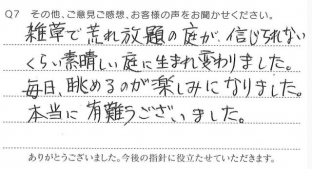 Q7 その他、ご意見ご感想、お客様の声をお聞かせください。
雑草で荒れ放題の庭が、信じられない
くらい素晴しい庭に生まれ変わりました。
毎日、眺めるのが楽しみになりました。
本当に有難うございました。
ありがとうございました。今後の指針に役立たせていただきます。